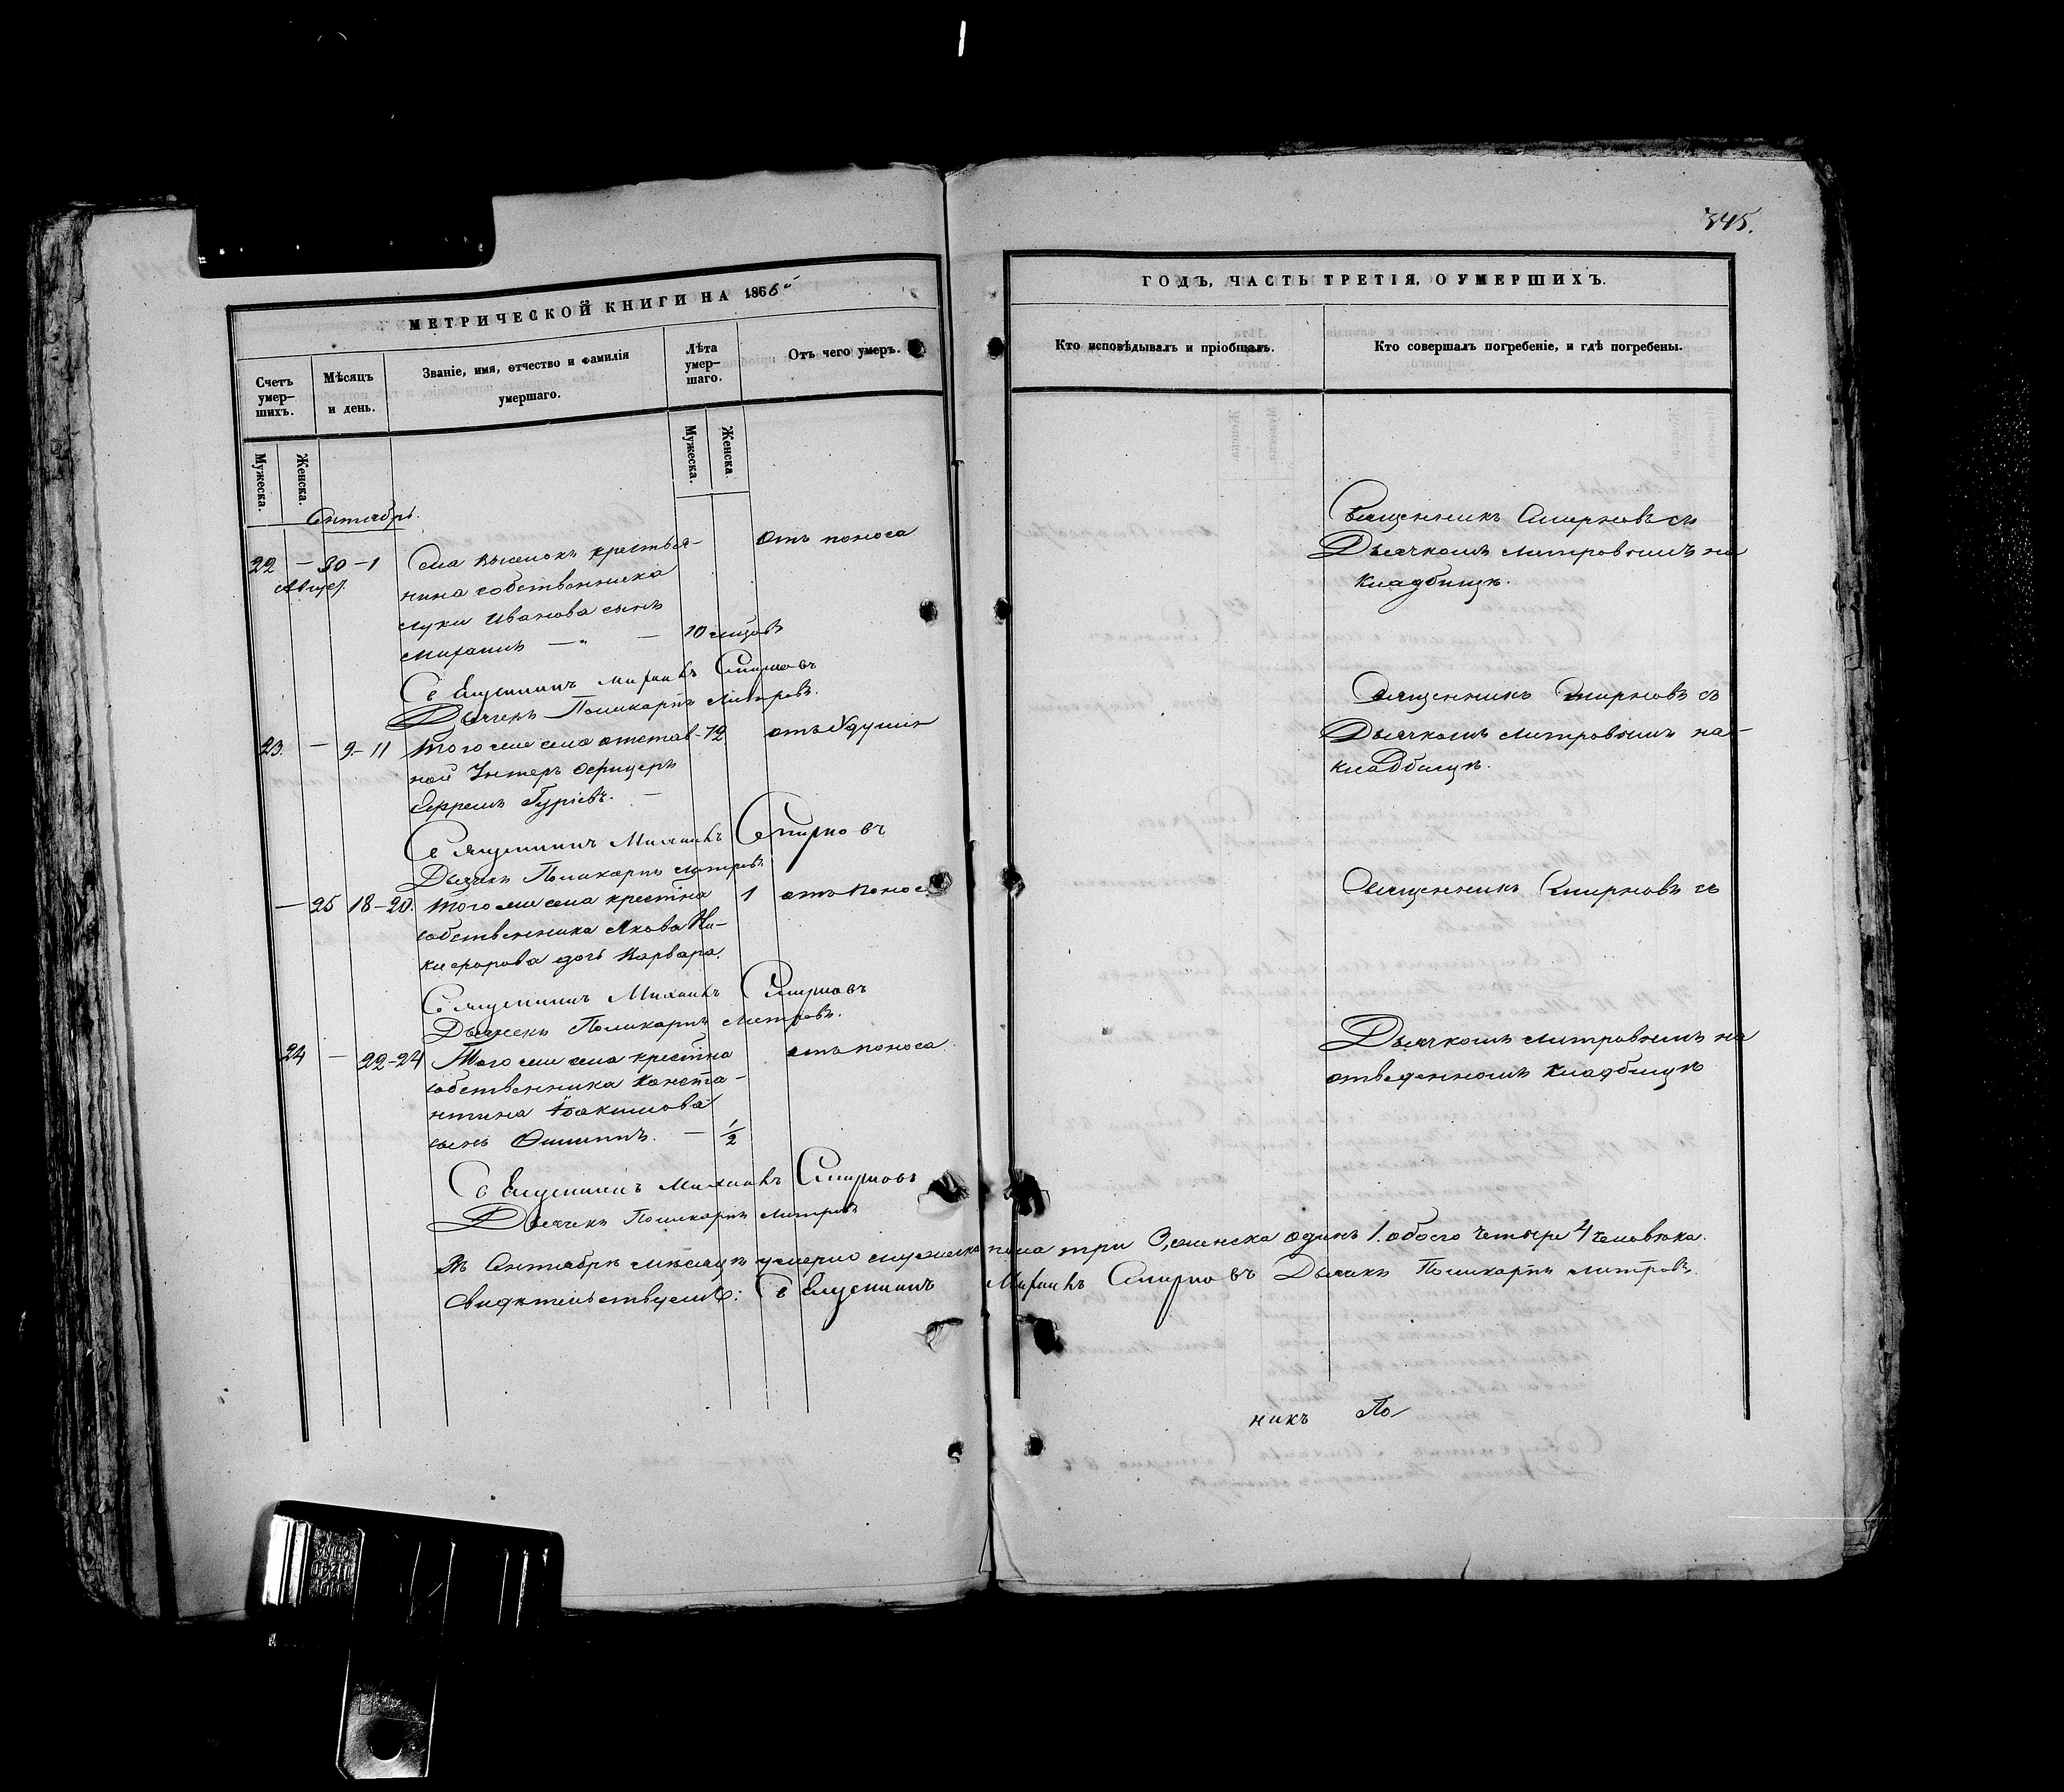 345.
МЕТРИЧЕСКОЙ КНИГИ НА 1866й
ГОДЪ, ЧАСТЬ ТРЕТІЯ, О УМЕРШИХЪ.
Счетъ умер-
шихъ.
Мѣсяцъ
и день.
Званіе, имя, отчество и фамилія
умершаго.
Лѣта
умер-
шаго.
Отъ чего умеръ.
Кто исповѣдывалъ и пріобщалъ.
Кто совершалъ погребеніе, и гдѣ погребены.
Мужеска.
Женска.
Мужеска.
Женска.
Сентябрь.
22 — 30 — 1
Авгус.
Села крестья-
нина собственника
Луки Иванова сынъ
Михаилъ — " — 10 мѣсяц.
отъ поноса
Священникъ Смирновъ съ
Дьячкомъ Митровымъ на
кладбищѣ.
Священникъ Михаилъ Смирновъ
Дьячекъ Поликарпъ Митровъ.
23. — 9 — 11 Того же села отстав- 72
ной Унтеръ Офицеръ
Ефремъ Гуріевъ. —
отъ удушія
Священникъ Смирновъ съ
Дьячкомъ Митровымъ на-
кладбищѣ.
Священникъ Михаилъ Смирновъ
Дьячекъ Поликарпъ Митровъ
— 25 18 — 20. Того же села крестіна 1
собственника Якова Ни-
кифорова дочь Варвара.
отъ поноса
Священникъ Смирновъ съ
Священникъ Михаилъ Смирновъ
Дьячекъ Поликарпъ Митровъ.
24 — 22 — 24 Того же села крестіна
собственника Конста-
нтина Іоакимова
сынъ Филиппъ. — 1/2
отъ поноса.
Дьячкомъ Митровымъ на
отведенномъ кладбищѣ
Священникъ Михаилъ Смирновъ
Дьячекъ Поликарпъ Митровъ
Въ Сентябрѣ мѣсяцѣ умерло мужеска пола три 3, женска одинъ 1. обоего четыре 4 человѣка.
Свидѣтельствуемъ: Священникъ Михаилъ Смирновъ Дьячекъ Поликарпъ Митровъ.
никъ По-